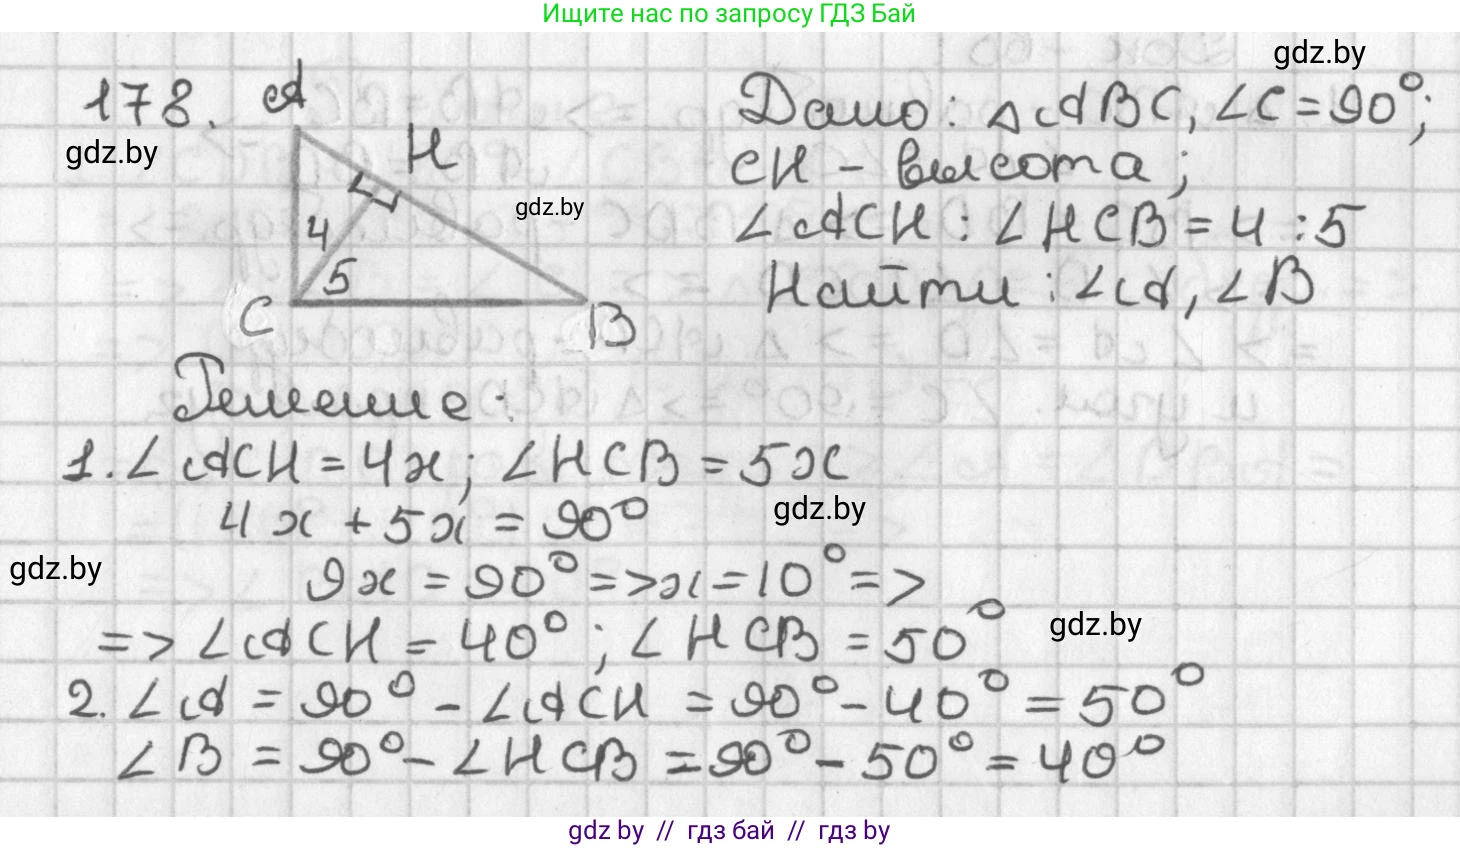 Ищите нас по запросу ГДЗ Бай
gdz.by
178.
A
H
4
5
C
B
gdz.by
gdz.by
Дано: △ABC, ∠C = 90°;
CH - высота;
∠ACH : ∠HCB = 4 : 5
Найти: ∠A, ∠B
Решение:
1. ∠ACH = 4x; ∠HCB = 5x
4x + 5x = 90°
gdz.by
gdz.by
9x = 90° => x = 10° =>
=> ∠ACH = 40°; ∠HCB = 50°
gdz.by
2. ∠A = 90° - ∠ACH = 90° - 40° = 50°
∠B = 90° - ∠HCB = 90° - 50° = 40°
gdz by // гдз бай // гдз by